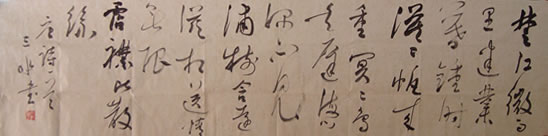 楚江微雨
里建業
暮鐘時
漠漠帆來
重冥冥鳥
去遲海門
深不見
浦樹含遠
滋相送情
無限
霑襟比散
絲
唐詩一首
三水書